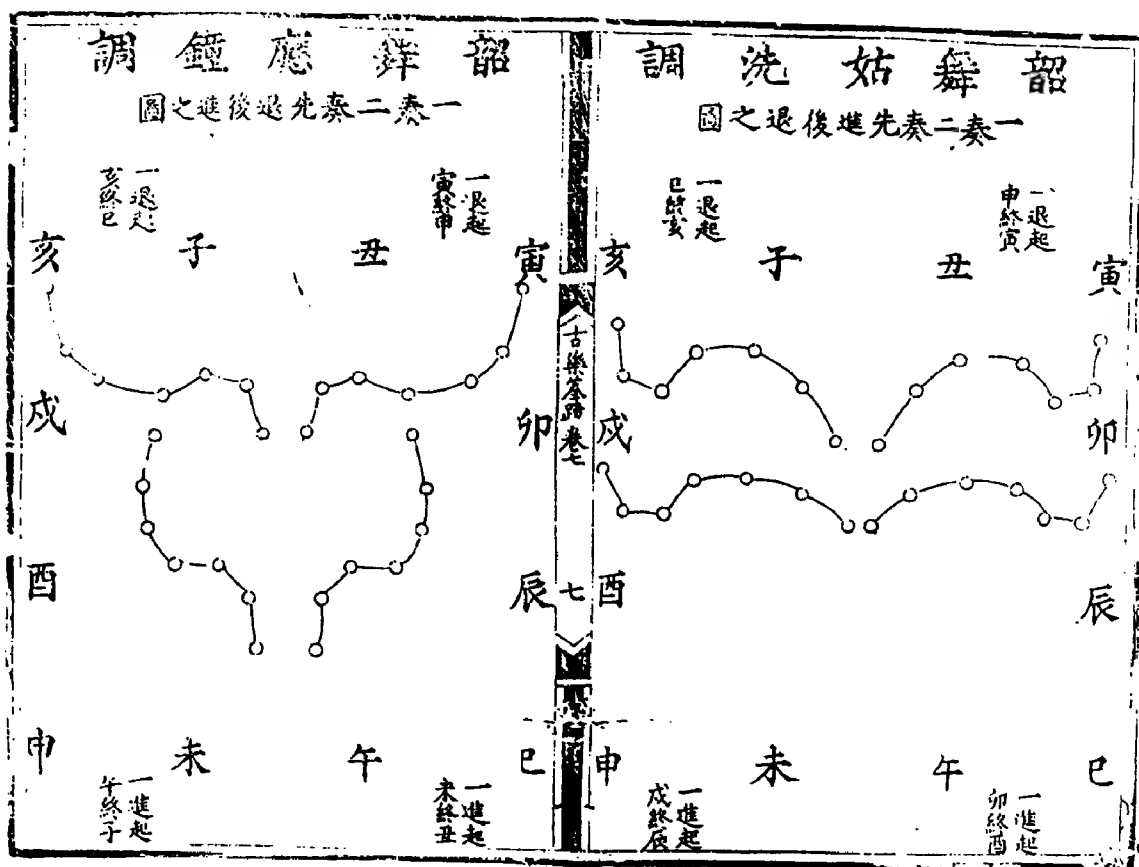 韶舞姑洗調
一奏二奏先進後退之圖
一退起
申終寅
一退起
巳終亥
寅
丑
子
亥
卯
戌
辰
酉
巳
午
未
申
一進起
卯終酉
一進起
戌終辰
古樂筌蹄卷七
七
韶舞應鐘調
一奏二奏先退後進之圖
一退起
寅終申
一退起
亥終巳
寅
丑
子
亥
卯
戌
辰
酉
巳
午
未
申
一進起
未終丑
一進起
午終子